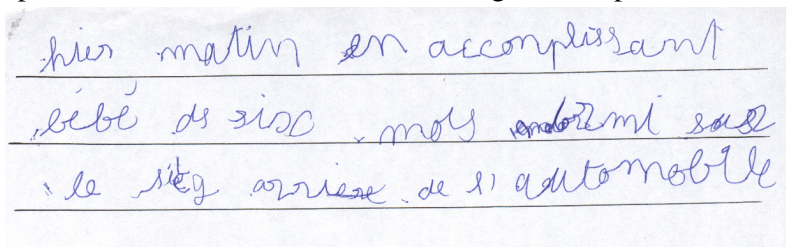 hier matin en accomplissant
bébé de sisc mois endormi sur
le siég arriere de l'automobile